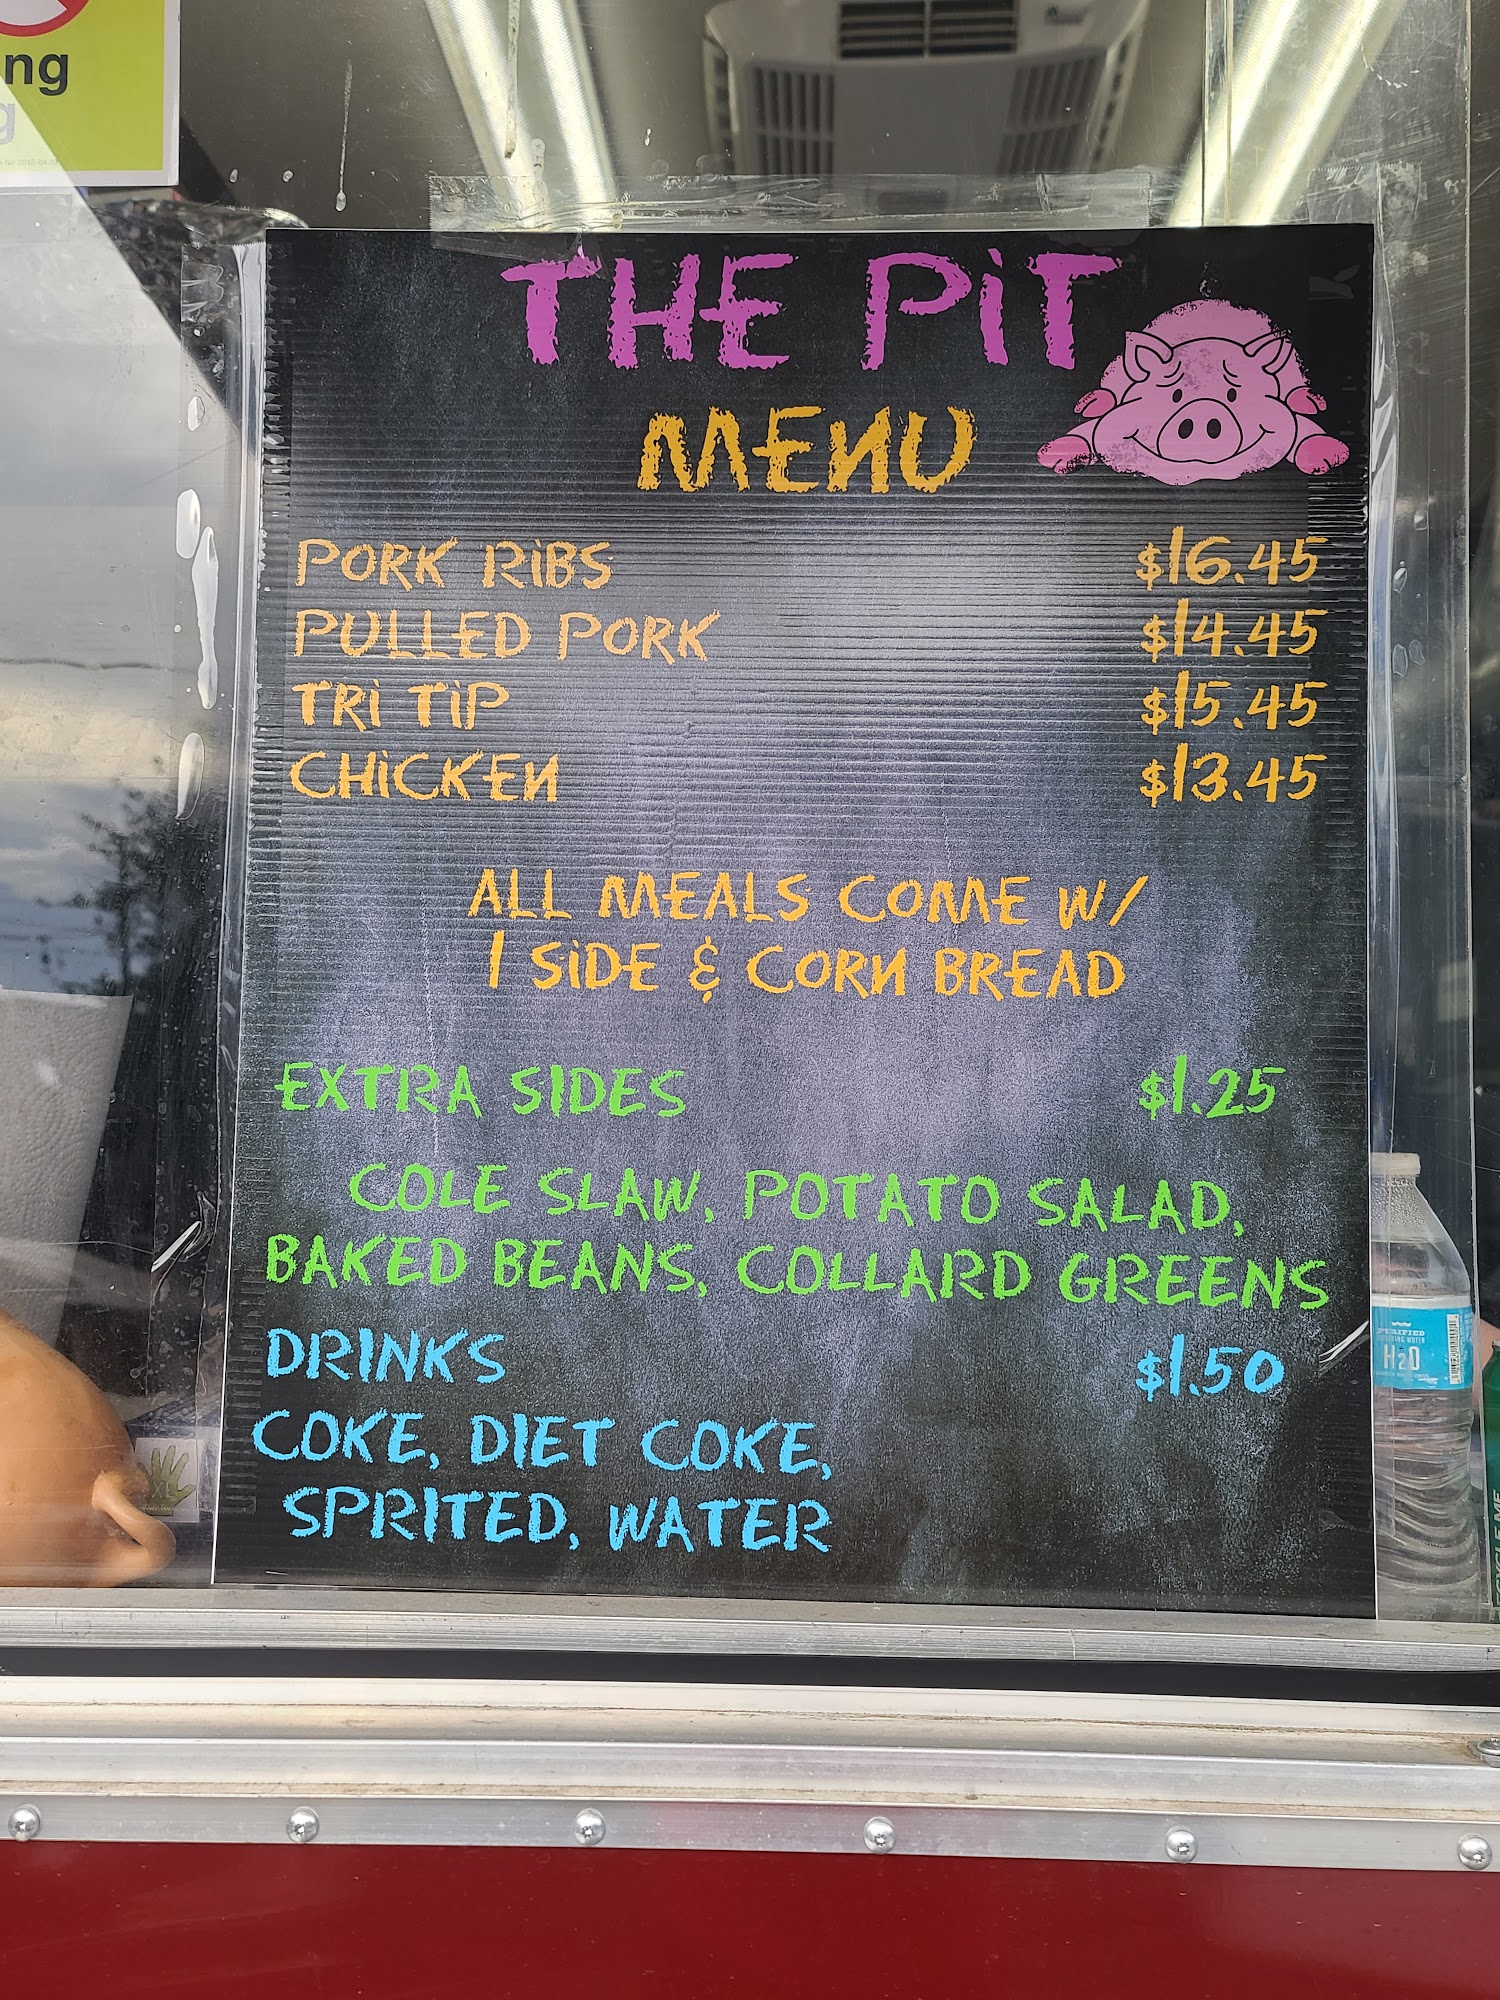 ng
g
THE PiT
MENU
PORK RiBS $16.45
PULLED PORK $14.45
TRi TiP $15.45
CHiCKEN $13.45
ALL MEALS COME W/
1 SiDE & CORN BREAD
EXTRA SIDES $1.25
COLE SLAW, POTATO SALAD,
BAKED BEANS, COLLARD GREENS
DRINKS $1.50
COKE, DIET COKE,
SPRITED, WATER
PURIFIED
H2O
XL